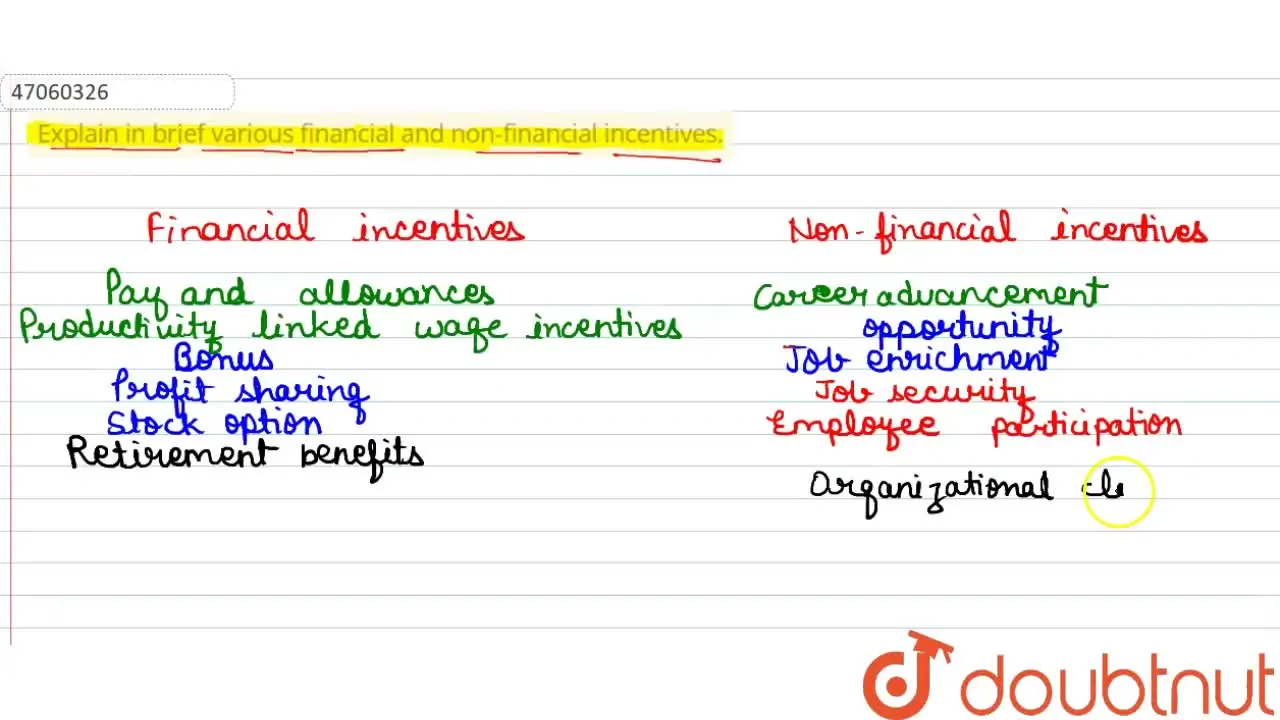 47060326
Explain in brief various financial and non-financial incentives.
Financial incentives
Pay and allowances
Productivity linked wage incentives
Bonus
Profit sharing
Stock option
Retirement benefits
Non-financial incentives
Career advancement
opportunity
Job enrichment
Job security
Employee participation
Organizational cli
doubtnut